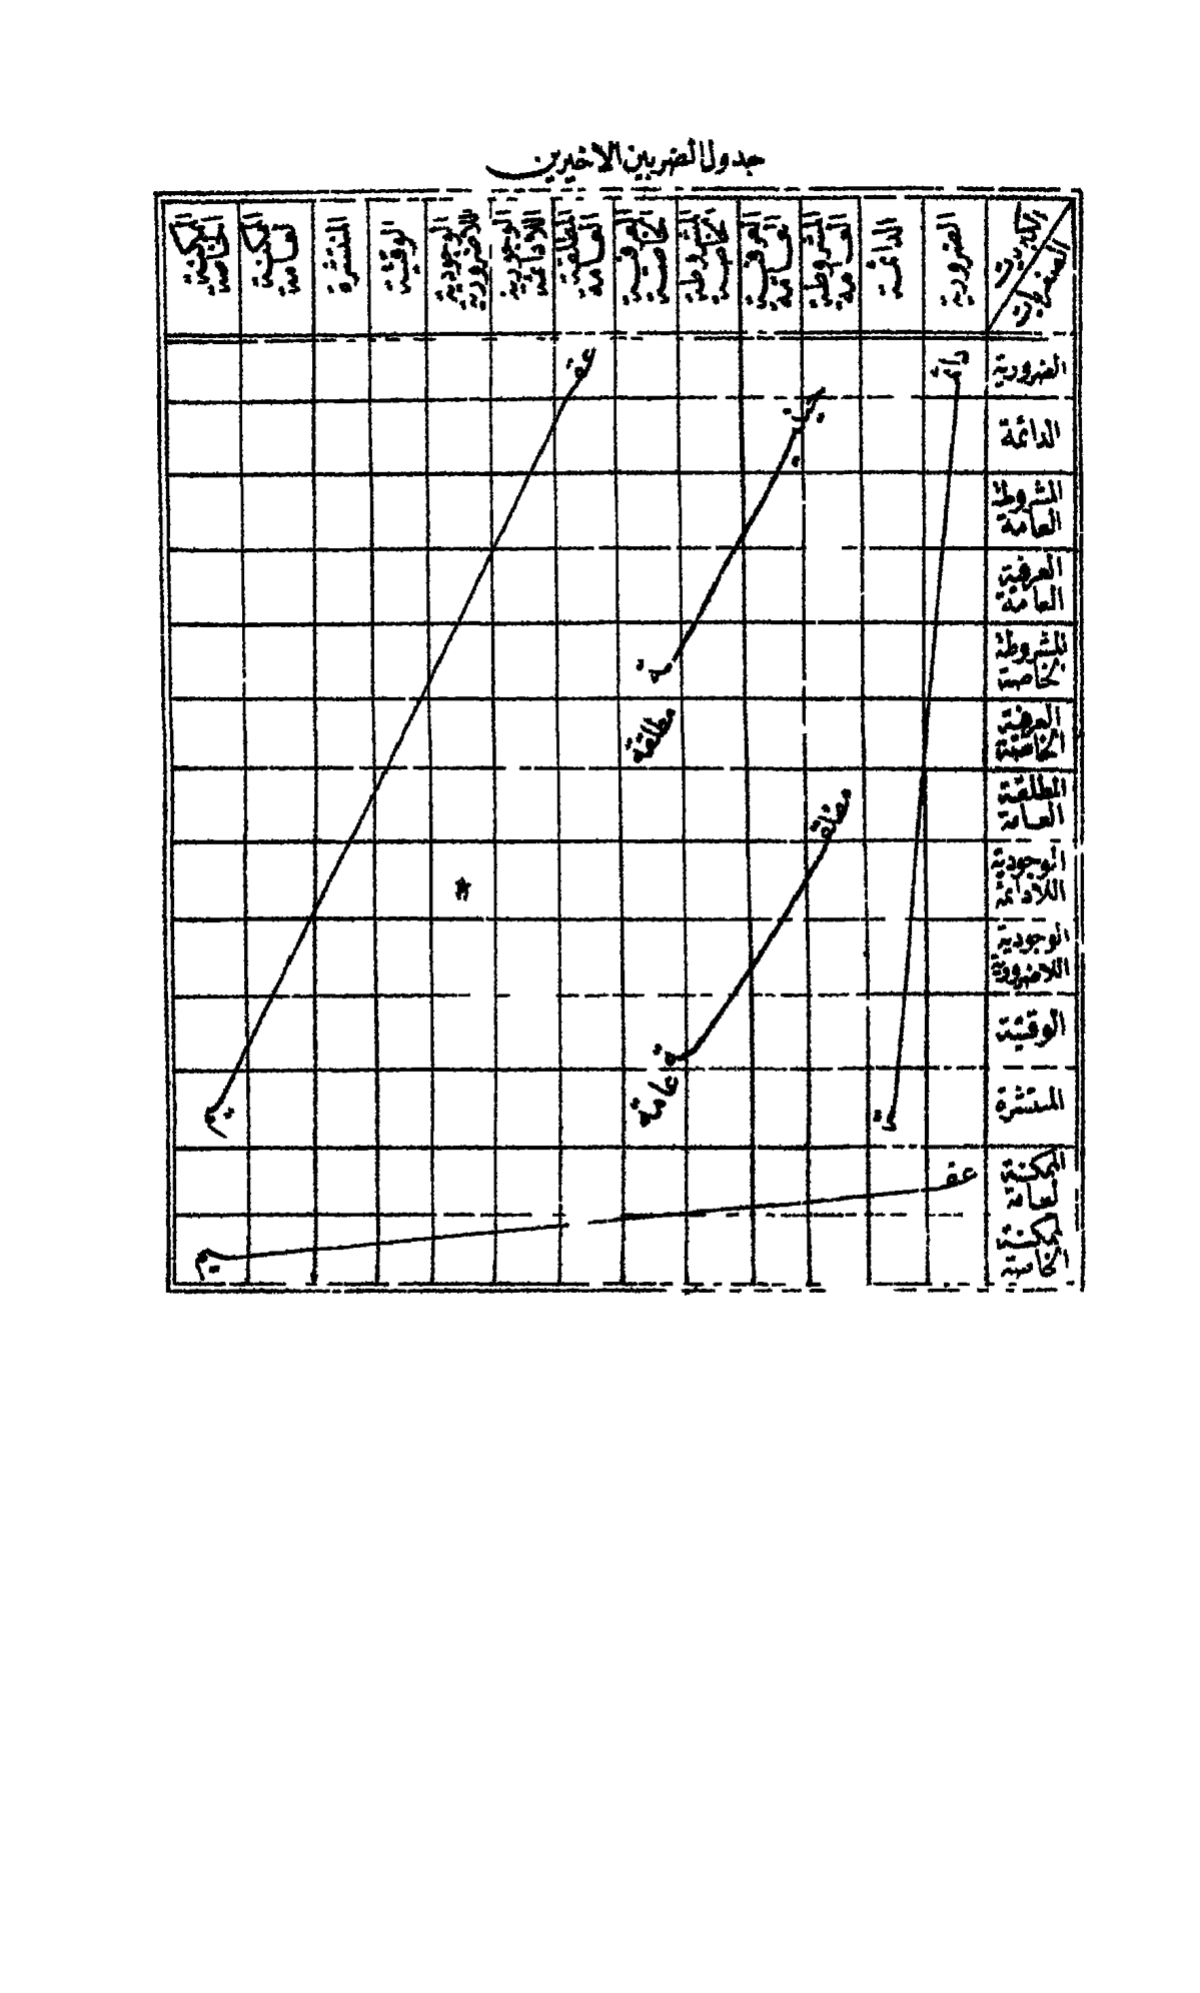 جدول الضربين الاخيرين
الكبريات
الصغريات
الضرورية
الدائمة
المشروطة العامة
العرفية العامة
المشروطة الخاصة
العرفية الخاصة
المطلقة العامة
الوجودية اللادائمة
الوجودية اللاضرورية
الوقتية
المنتشرة
الممكنة العامة
الممكنة الخاصة
الضرورية
الدائمة
المشروطة العامة
العرفية العامة
المشروطة الخاصة
العرفية الخاصة
المطلقة العامة
الوجودية اللادائمة
الوجودية اللاضرورية
الوقتية
المنتشرة
الممكنة العامة
الممكنة الخاصة
دائمة
حينية
مطلقة
مطلقة عامة
عقيم
عقيم
*